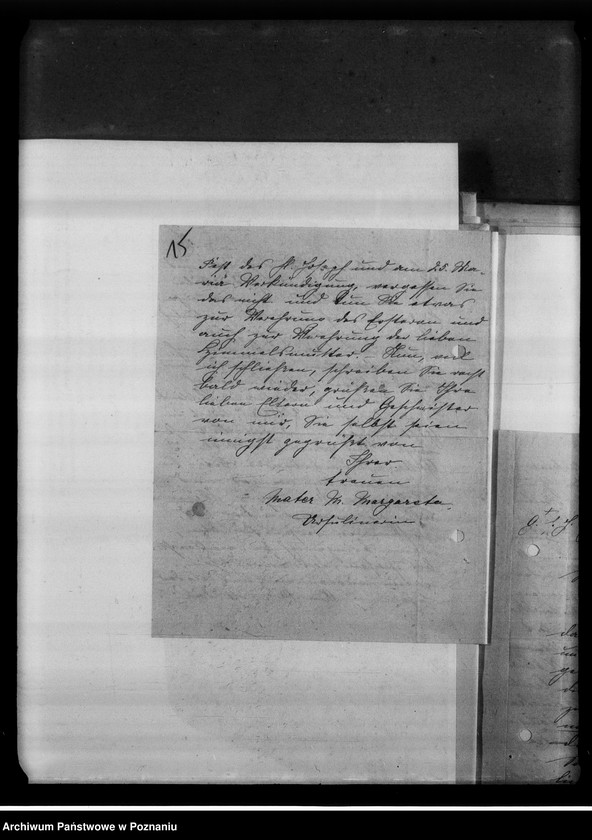 15
Fest des hl. Joseph und am 25. Ma-
riä Verkündigung, vergessen Sie
das nicht und tun Sie etwas
zur Verehrung des Ersteren und
auch zur Verehrung der lieben
Himmelsmutter. Nun, will
ich schließen, schreiben Sie recht
bald wieder, grüßen Sie Ihre
lieben Eltern und Geschwister
von mir, Sie selbst seien
innigst gegrüßt von
Ihrer
treuen
Mater M. Margareta
Ursulinerin
Archiwum Państwowe w Poznaniu